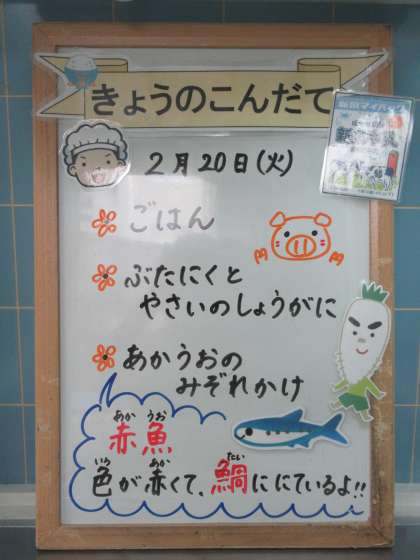 きょうのこんだて
2月20日(火)
ごはん
ぶたにくと
やさいのしょうがに
あかうおの
みぞれかけ
あか うお
赤魚
いろ あか たい
色が赤くて、鯛ににているよ!!